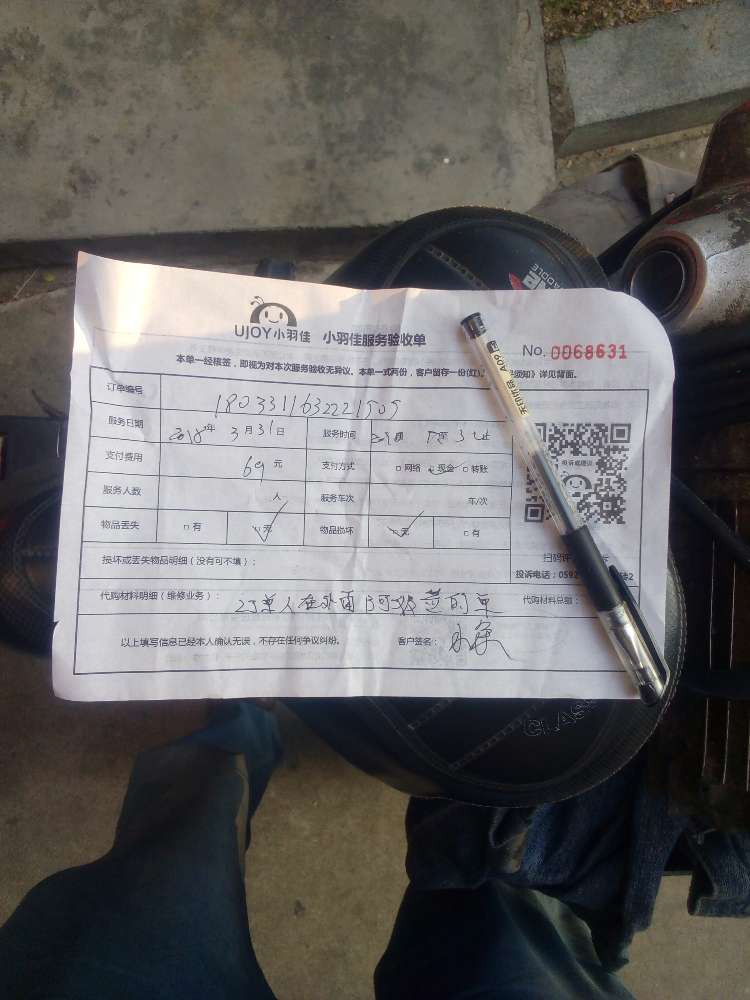 UJOY小羽佳 小羽佳服务验收单
No. 0068631
本单一经核签,即视为对本次服务验收无异议。本单一式两份,客户留存一份(红)。 须知》详见背面。
订单编号 1803311632221505
服务日期 2018年 3月31日 服务时间
支付费用 69元 支付方式 □网络 □现金 □转账
服务人数 人 服务车次 车/次
物品丢失 □有 □无 物品损坏 □无 □有
投诉或建议
损坏或丢失物品明细(没有可不填):
扫码评
投诉电话:0592
代购材料明细(维修业务): 订单人在外面 的单 代购材料总额:
以上填写信息已经本人确认无误,不存在任何争议纠纷。 客户签名:
A09
CLASS